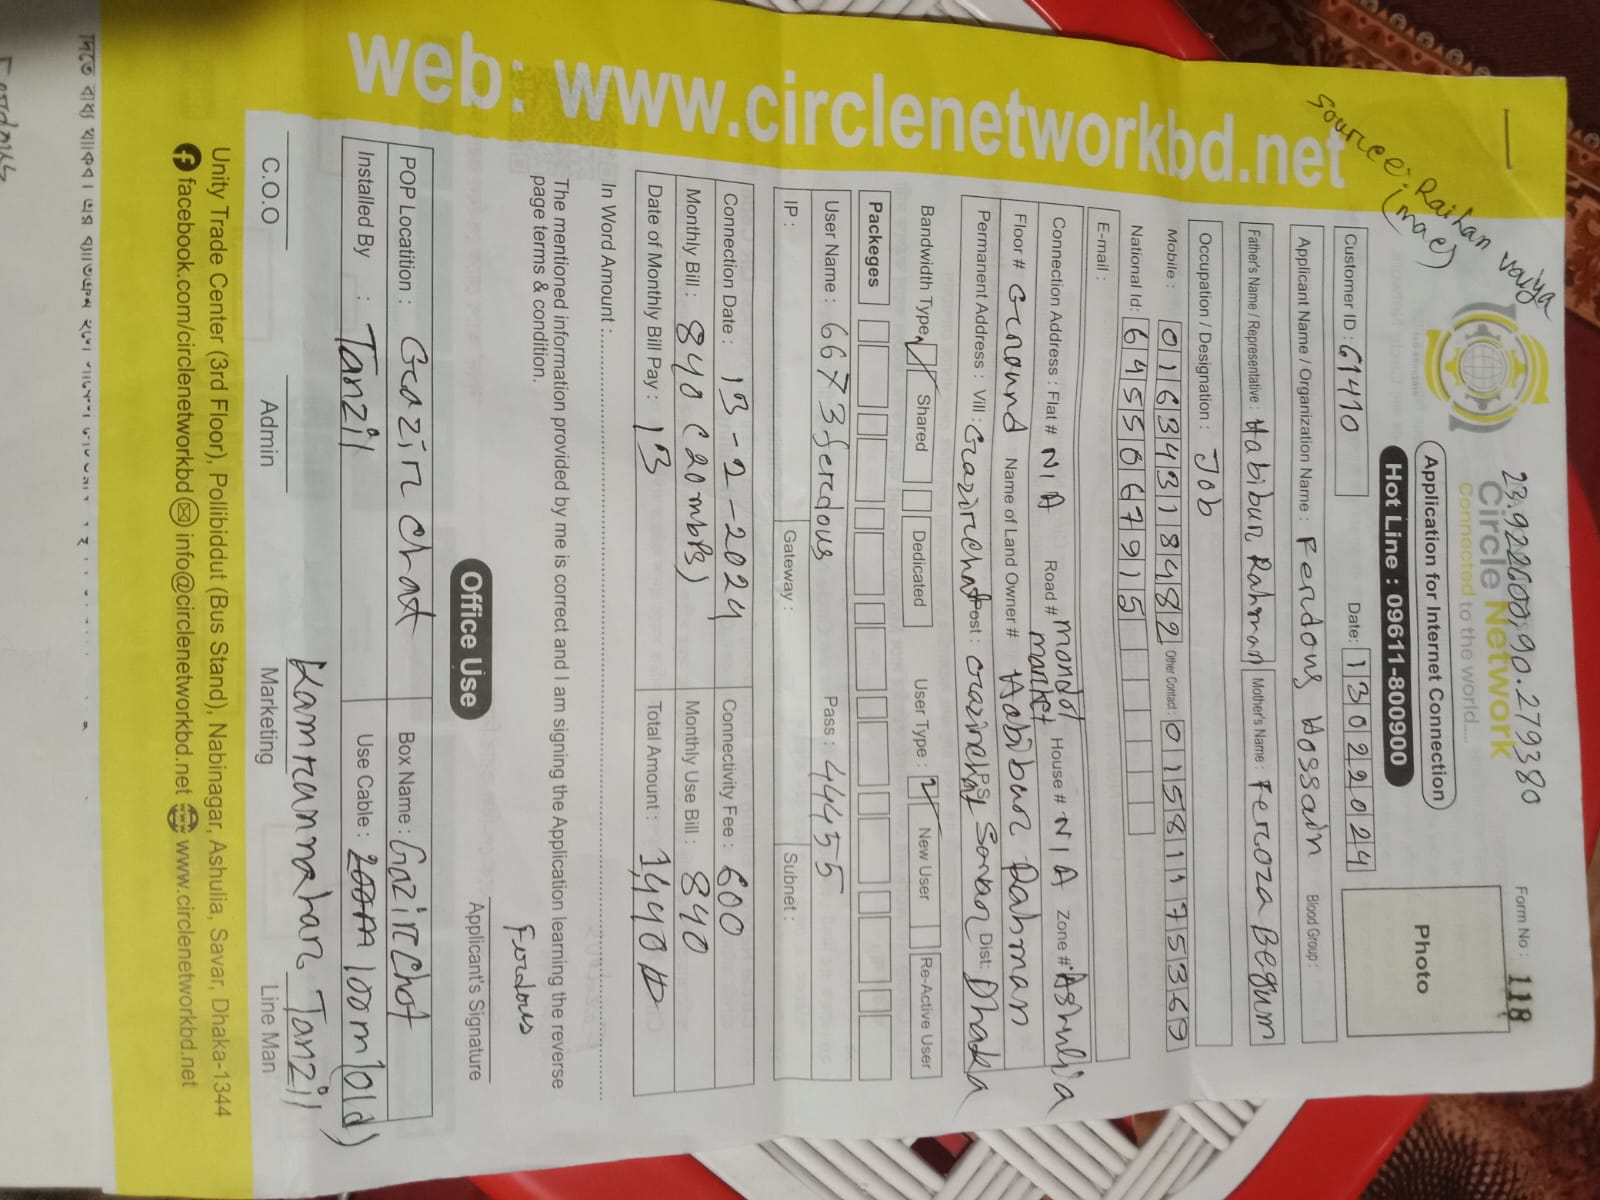 web: www.circlenetworkbd.net
Source: Raihan vaiya
(mac)
23.922600,90.279380
Circle Network
Connected to the world....
Form No : 118
Application for Internet Connection
Hot Line : 09611-800900
Photo
Customer ID : G1410 Date: 13022024
Applicant Name / Organization Name : Ferdous Hossain Blood Group :
Father's Name / Representative : Habibur Rahman Mother's Name : Feroza Begum
Occupation / Designation : Job
Mobile : 01634318482 Other Contact : 01581175369
National Id : 6455067915
E-mail :
Connection Address : Flat # N/A Road # mondol market House # N/A Zone # Ashulia
Floor # Ground Name of Land Owner # Habibur Rahman
Permanent Address : Vill : Gazirchat Post : Gazirchat PS Savar Dist: Dhaka
Bandwidth Type Shared Dedicated User Type : New User Re-Active User
Packeges
User Name : 6673ferdous Pass : 44455
IP : Gateway : Subnet :
Connection Date : 13-2-2024 Connectivity Fee : 600
Monthly Bill : 840 (20mbps) Monthly Use Bill : 840
Date of Monthly Bill Pay : 13 Total Amount : 1,440
In Word Amount :
The mentioned information provided by me is correct and I am signing the Application learning the reverse
page terms & condition.
Ferdous
Applicant's Signature
Office Use
POP Locatition : Gazir chat Box Name : Gazirchat
Installed By : Tanzil Use Cable : 200m 100m (old)
Kamrunnahar Tanzil
C.O.O Admin Marketing Line Man
Unity Trade Center (3rd Floor), Pollibiddut (Bus Stand), Nabinagar, Ashulia, Savar, Dhaka-1344
facebook.com/circlenetworkbd info@circlenetworkbd.net www.circlenetworkbd.net